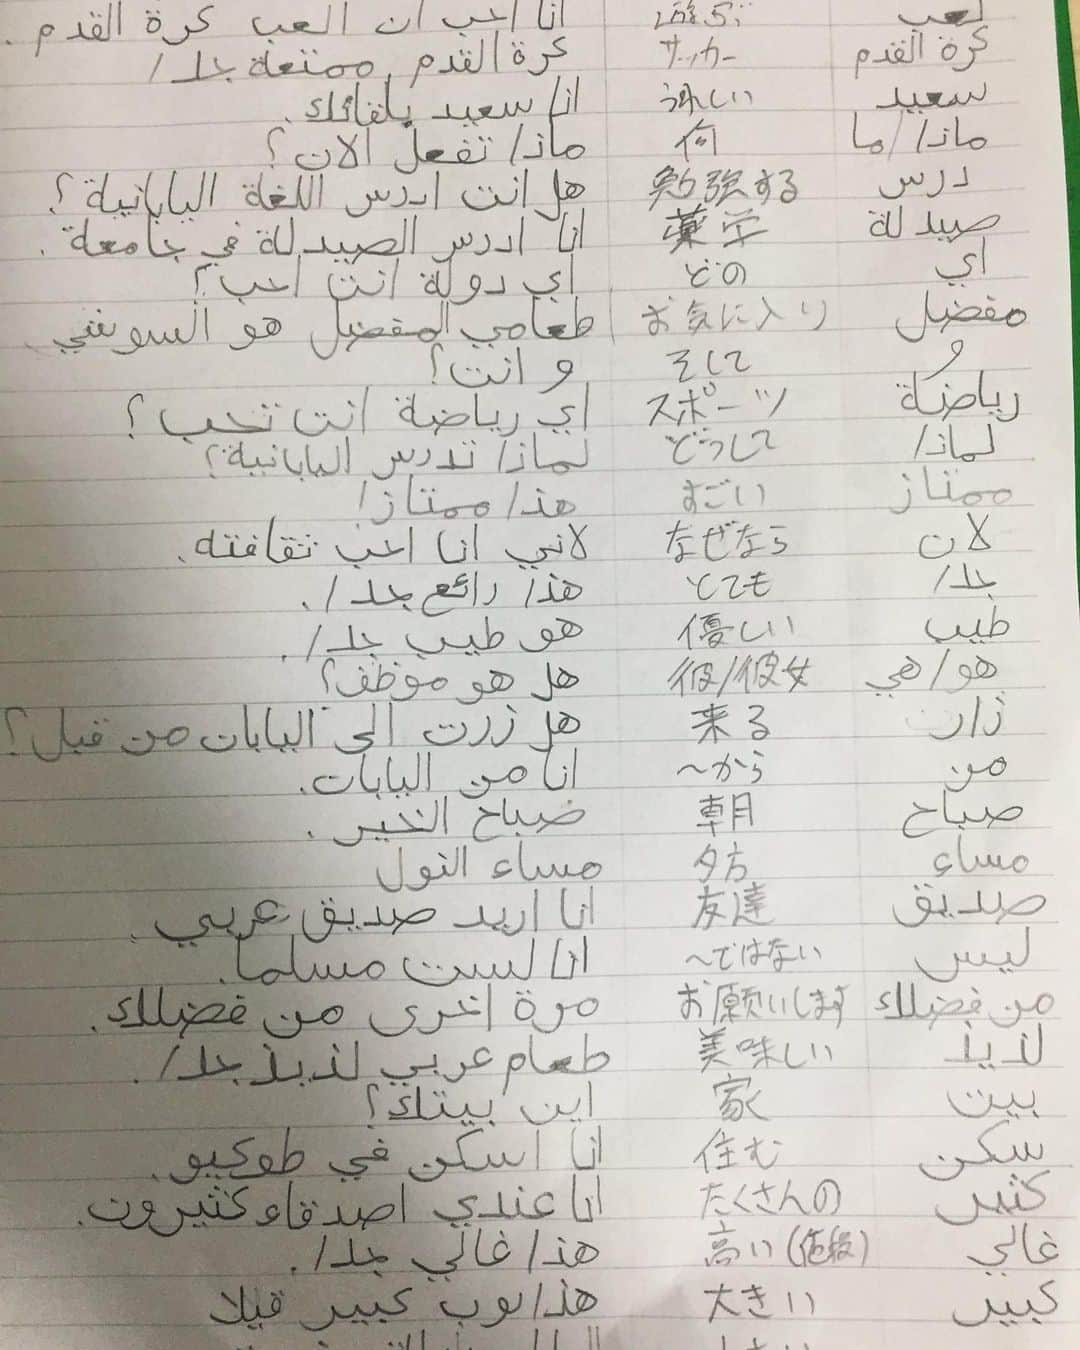 لعب انا احب ان العب كرة القدم.
كرة القدم サッカー كرة القدم ممتعة جدا
سعيد うれしい انا سعيد بلقائك.
ماذا/ما 何 ماذا تفعل الان؟
درس 勉強する هل انت ادرس اللغة اليابانية؟
صيدلة 薬学 انا ادرس الصيدلة في جامعة.
اي どの اي دولة انت احب؟
مفضل お気に入り طعامي المفضل هو السوشي.
و そして و انت؟
رياضة スポーツ اي رياضة انت تحب؟
لماذا どうして لماذا تدرس اليابانية؟
ممتاز すごい هذا ممتاز!
لان なぜなら لاني انا احب ثقافته.
جدا とても هذا رائع جدا.
طيب 優しい هو طيب جدا.
هو/هي 彼/彼女 هل هو موظف؟
زار 来る هل زرت الى اليابان من قبل؟
من ～から انا من اليابان.
صباح 朝 صباح الخير.
مساء 夕方 مساء النول
صديق 友達 انا اريد صديق عربي.
ليس ～ではない انا لست مسلما.
من فضلك お願いします مرة اخرى من فضلك.
لذيذ 美味しい طعام عربي لذيذ جدا.
بيت 家 اين بيتك؟
سكن 住む انا اسكن في طوكيو.
كثير たくさんの انا عندي اصدقاء كثيرون.
غالي 高い(値段) هذا غالي جدا.
كبير 大きい هذا كبير قيلا